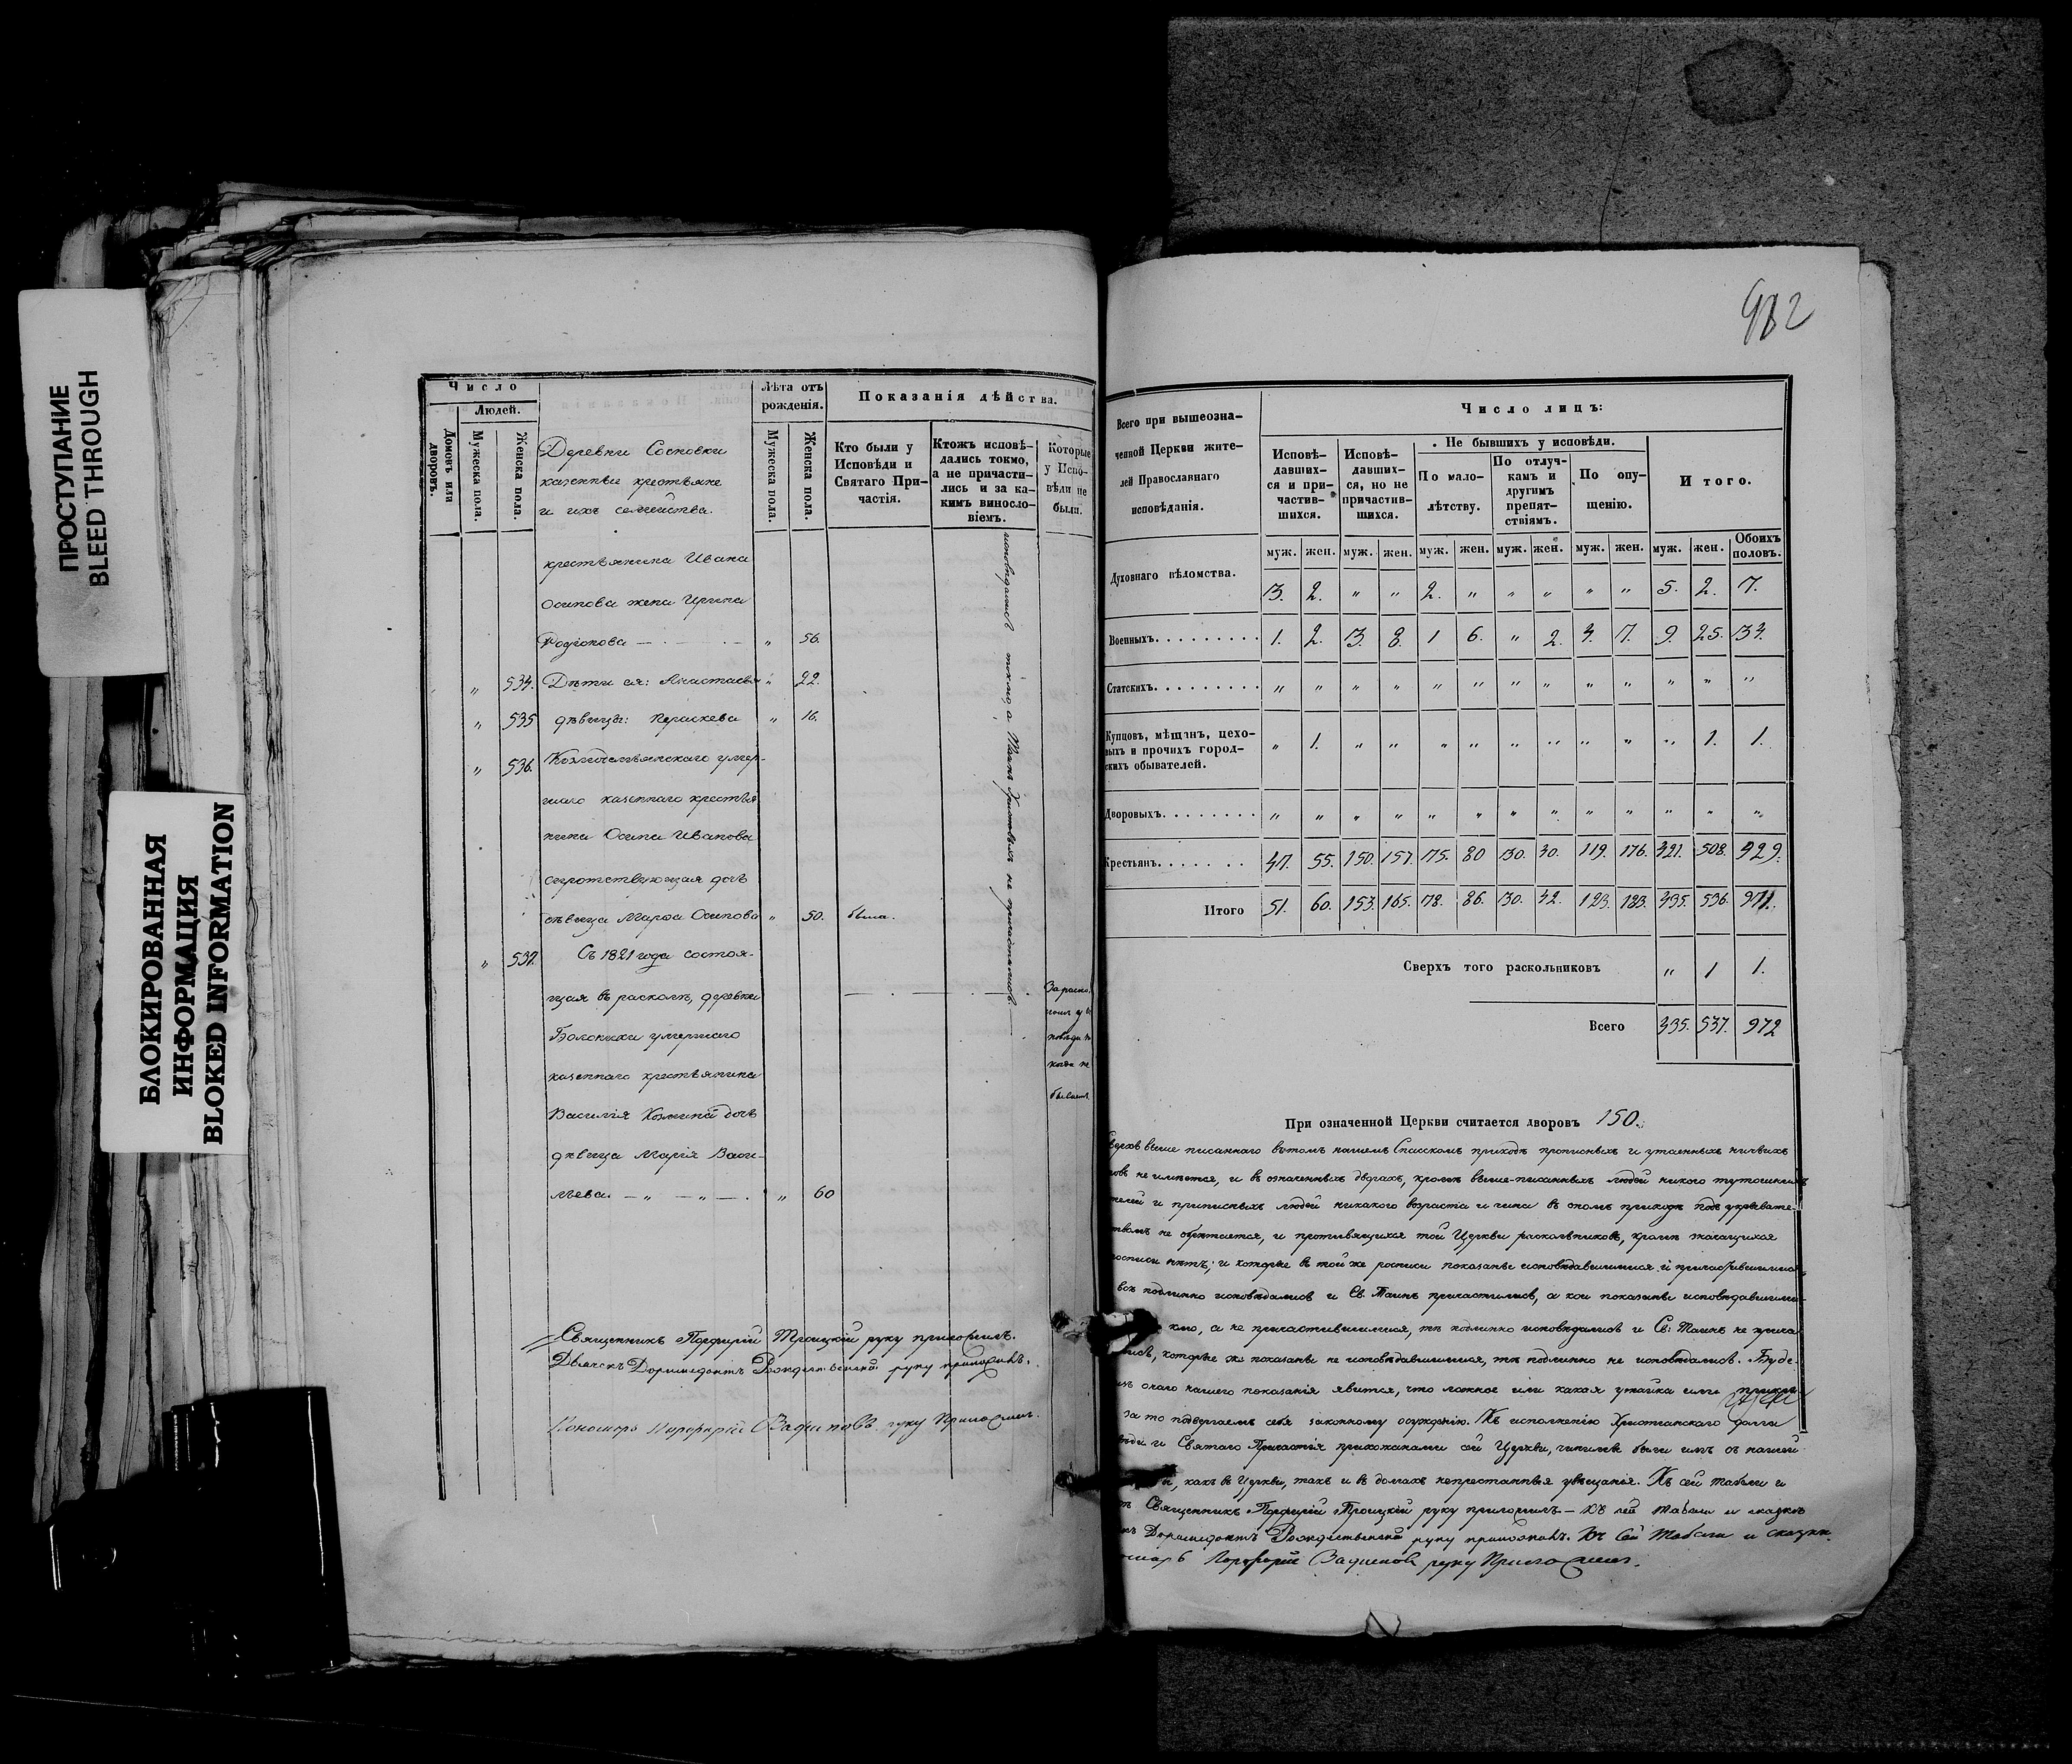 ПРОСТУПАНИЕ
BLEED THROUGH
БЛОКИРОВАННАЯ
ИНФОРМАЦИЯ
BLOKED INFORMATION
Число
Людей.
Домовъ или дворовъ.
Мужеска пола.
Женска пола.
Деревни Сосновки
казенные крестьяне
и ихъ семейства.
Лѣта отъ рожденія.
Мужеска пола.
Женска пола.
Показанія дѣйства.
Кто были у Исповѣди и Святаго Причастія.
Ктожъ исповѣдались токмо, а не причастились и за какимъ винословіемъ.
Которые у Исповѣди не были.
крестьянина Ивана
Осипова жена Ирина
Родіонова — " 56.
" 534. Дѣти ея: Анастасья " 22.
" 535 дѣвицы: Параскева " 16.
" 536. Козмодемьянскаго умер-
шаго казеннаго крестья
нина Осипа Иванова
сиротствующая дочь
дѣвица Марѳа Осипова " 50. была.
" 537. Съ 1821 года состоя-
щая въ расколѣ, деревни
умершаго
казеннаго крестьянина
Василія Козмина дочь
дѣвица Марія Васи-
льева. — " — " — . " 60
исповѣдались токмо, а Таинъ Христовыхъ не причастились.
Священникъ Порфирій Троицкій руку приложилъ.
Дьячекъ Доримедонтъ Рождественскій руку приложилъ.
Пономарь Порфирій руку приложилъ.
982
Всего при вышеозначенной Церкви жителей Православнаго исповѣданія.
Число лицъ:
Исповѣдавшихся и причастившихся.
Исповѣдавшихся, но не причастившихся.
Не бывшихъ у исповѣди.
По малолѣтству.
По отлучкамъ и другимъ препятствіямъ.
По опущенію.
Итого.
муж. жен. муж. жен. муж. жен. муж. жен. муж. жен. муж. жен. Обоихъ половъ.
Духовнаго вѣдомства. 3. 2. " " 2. " " " " " 5. 2. 7.
Военныхъ. 1. 2. 3. 8. 1 6. " 2. 4. 7. 9. 25. 34.
Статскихъ. " " " " " " " " " " " " "
Купцовъ, мѣщанъ, цехо-
выхъ и прочихъ город-
скихъ обывателей. " 1. " " " " " " " " " 1. 1.
Дворовыхъ. " " " " " " " " " " " " "
Крестьянъ. 47. 55. 150. 157. 75. 80 30. 40. 119. 176. 421. 508. 929.
Итого 51. 60. 153. 165. 78. 86. 30. 42. 123. 183. 435. 536. 971.
Сверхъ того раскольниковъ " 1 1.
Всего 435. 537. 972
При означенной Церкви считается дворовъ 150.
Сверхъ выше писаннаго въ томъ нашемъ Спасскомъ приходѣ прописныхъ и утаенныхъ ничьихъ
не имѣется, и въ означенныхъ дворахъ, кромѣ выше-писанныхъ людей никого
и приписныхъ людей никакого возраста и чина въ ономъ приходѣ подъ укрывате-
не обрѣтается, и противящихся той Церкви раскольниковъ, кромѣ значащихся
росписи нѣтъ; и которые въ той же росписи показаны исповѣдавшимися и причастившимися
всѣ подлинно исповѣдались и Св. Таинъ причастились, а кои показаны исповѣдавшими
а не причастившимися, тѣ подлинно исповѣдались и Св. Таинъ не прича
которые же показаны не исповѣдавшимися, тѣ подлинно не исповѣдались. Буде
онаго нашего показанія явится, что ложное или какая утайка или
за то подвергаемъ себя законному осужденію. Къ исполненію Христіанскаго долга
и Святаго Причастія прихожанами сей Церкви, чинимы были имъ съ нашей
какъ въ Церкви, такъ и въ домахъ непрестанныя увѣщанія. Къ сей табели и
Священникъ Порфирій Троицкій руку приложилъ — Къ сей табели и сказкѣ
Доримедонтъ Рождественскій руку приложилъ. Къ сей табели и сказкѣ
Порфирій руку приложилъ.